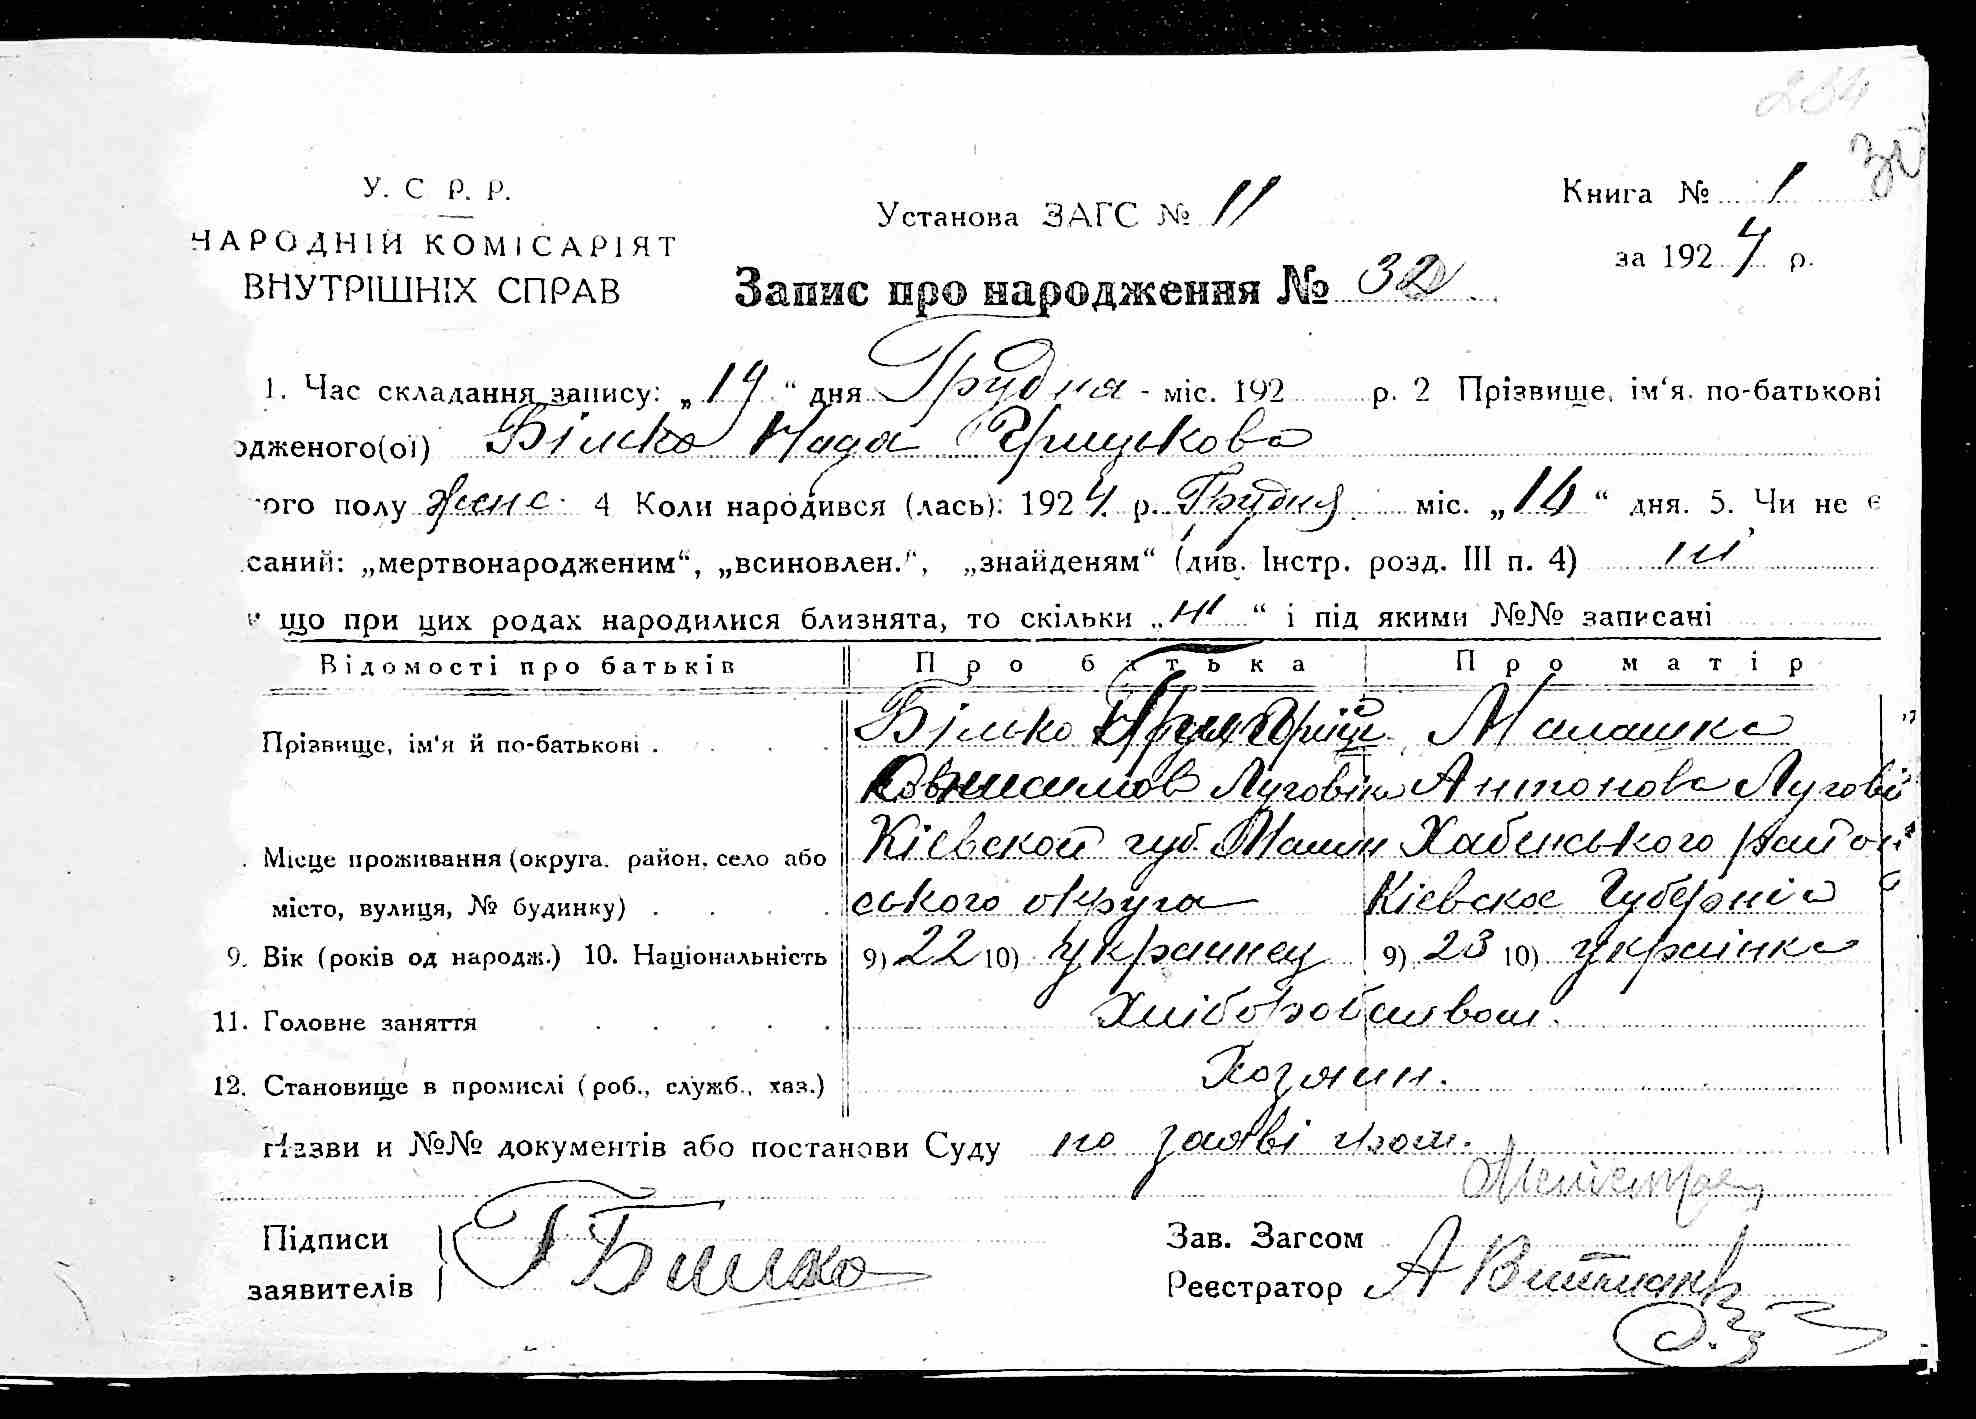 284
30
У. С Р. Р.
НАРОДНІЙ КОМІСАРІЯТ
ВНУТРІШНІХ СПРАВ
Установа ЗАГС № 11
Книга № 1
за 1924 р.
Запис про народження № 32
1. Час складання запису: „19“ дня Грудня - міс. 192 р. 2 Прізвище, ім‘я. по-батькові
одженого(ої) Білко Надя Грицькова
ого полу жінс 4 Коли народився (лась): 1924 р. Грудня міс. „16“ дня. 5. Чи не є
саний: „мертвонародженим“, „всиновлен.“, „знайденям“ (див. Інстр. розд. III п. 4) ні
що при цих родах народилися близнята, то скільки „ні“ і під якими №№ записані
Відомості про батьків Про батька Про матір
Прізвище, ім‘я й по-батькові . Білко Григорій Малашка
Онисимов Луговики Антонова Лугові
Місце проживання (округа. район, село або Кіевской губ. Малин Хабенського район
місто, вулиця, № будинку) . ського округа Кіевское Губерніа
9. Вік (років од народж.) 10. Національність 9) 22 10) украинец 9) 23 10) українка
11. Головне заняття Хліборобством.
12. Становище в промислі (роб., служб., хаз.) Хозяин.
Назви и №№ документів або постанови Суду по заяві
Підписи
заявителів
Г Билко
Зав. Загсом
Реєстратор А